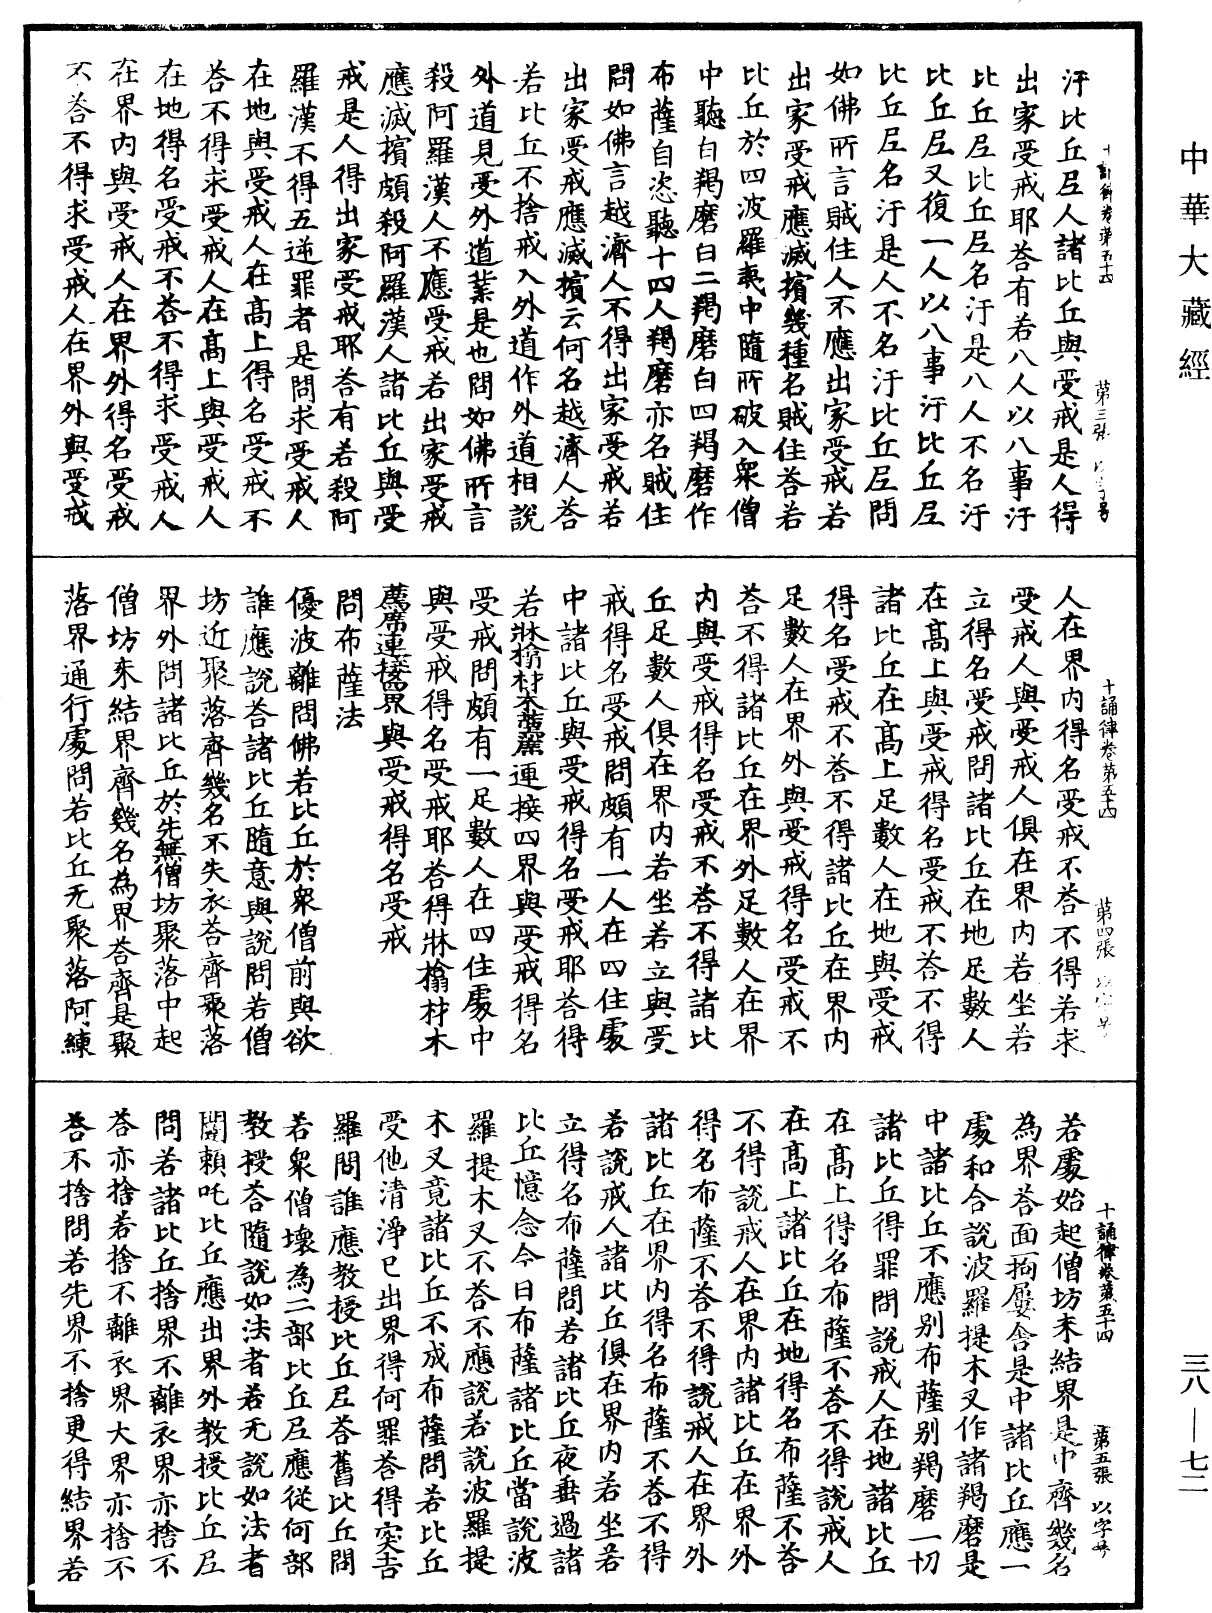 中華大藏經
十誦律卷第五十四　第三張
汙比丘尼人諸比丘與受戒是人得
出家受戒耶荅有若八人以八事汙
比丘尼比丘尼名汙是八人不名汙
比丘尼又復一人以八事汙比丘尼
比丘尼名汙是人不名汙比丘尼問
如佛所言賊住人不應出家受戒若
出家受戒應滅擯幾種名賊住荅若
比丘於四波羅夷中隨所破入衆僧
中聽白羯磨白二羯磨白四羯磨作
布薩自恣聽十四人羯磨亦名賊住
問如佛言越濟人不得出家受戒若
出家受戒應滅擯云何名越濟人荅
若比丘不捨戒入外道作外道相說
外道見受外道業是也問如佛所言
殺阿羅漢人不應受戒若出家受戒
應滅擯頗殺阿羅漢人諸比丘與受
戒是人得出家受戒耶荅有若殺阿
羅漢不得五逆罪者是問求受戒人
在地與受戒人在高上得名受戒不
荅不得求受戒人在高上與受戒人
在地得名受戒不荅不得求受戒人
在界內與受戒人在界外得名受戒
不荅不得求受戒人在界外與受戒
十誦律卷第五十四　第四張
人在界內得名受戒不荅不得若求
受戒人與受戒人俱在界內若坐若
立得名受戒問諸比丘在地足數人
在高上與受戒得名受戒不荅不得
諸比丘在高上足數人在地與受戒
得名受戒不荅不得諸比丘在界內
足數人在界外與受戒得名受戒不
荅不得諸比丘在界外足數人在界
內與受戒得名受戒不荅不得諸比
丘足數人俱在界內若坐若立與受
戒得名受戒問頗有一人在四住處
中諸比丘與受戒得名受戒耶荅得
若牀榻材木薦席連接四界與受戒得名
受戒問頗有一足數人在四住處中
與受戒得名受戒耶荅得牀榻材木
薦席連接四界與受戒得名受戒
問布薩法
優波離問佛若比丘於衆僧前與欲
誰應說荅諸比丘隨意與說問若僧
坊近聚落齊幾名不失衣荅齊聚落
界外問諸比丘於先無僧坊聚落中起
僧坊未結界齊幾名為界荅齊是聚
落界通行處問若比丘无聚落阿練
十誦律卷第五十四　第五張　以字號
若處始起僧坊未結界是中齊幾名
為界荅面一拘屢舍是中諸比丘應一
處和合說波羅提木叉作諸羯磨是
中諸比丘不應別布薩別羯磨一切
諸比丘得罪問說戒人在地諸比丘
在高上得名布薩不荅不得說戒人
在高上諸比丘在地得名布薩不荅
不得說戒人在界內諸比丘在界外
得名布薩不荅不得說戒人在界外
諸比丘在界內得名布薩不荅不得
若說戒人諸比丘俱在界內若坐若
立得名布薩問若諸比丘夜垂過諸
比丘憶念今日布薩諸比丘當說波
羅提木叉不荅不應說若說波羅提
木叉竟諸比丘不成布薩問若比丘
受他清淨已出界得何罪荅得突吉
羅問誰應教授比丘尼荅舊比丘問
若衆僧壞為二部比丘尼應從何部
教授荅隨說如法者若无說如法者
闡賴吒比丘應出界外教授比丘尼
問若諸比丘捨界不離衣界亦捨不
荅亦捨若捨不離衣界大界亦捨不
荅不捨問若先界不捨更得結界若
三八—七二